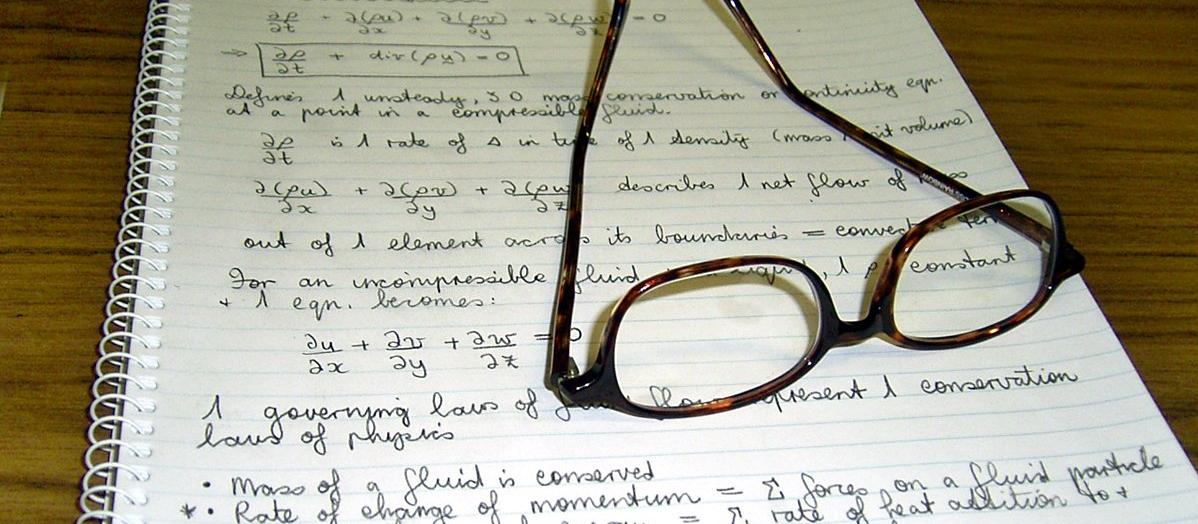 ∂ρ/∂t + ∂(ρu)/∂x + ∂(ρv)/∂y + ∂(ρw)/∂z = 0
⇒ ∂ρ/∂t + div(ρu) = 0
Defines 1 unsteady, 3D mass conservation or continuity eqn.
at a point in a compressible fluid.
∂ρ/∂t is 1 rate of Δ in time of 1 density (mass volume)
∂(ρu)/∂x + ∂(ρv)/∂y + ∂(ρw)/∂z describes 1 net flow of
out of 1 element across its boundaries =
For an incompressible fluid , 1 ρ constant
+ 1 eqn. becomes:
∂u/∂x + ∂v/∂y + ∂w/∂z = 0
1 governing laws of flow represent 1 conservation
laws of physics
• Mass of a fluid is conserved
* • Rate of change of momentum = Σ forces on a fluid particle
= Σ rate of heat addition to +